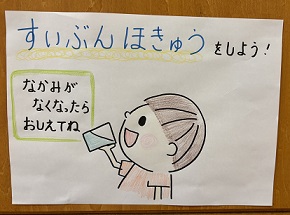 すいぶんほきゅうをしよう！
なかみが
なくなったら
おしえてね